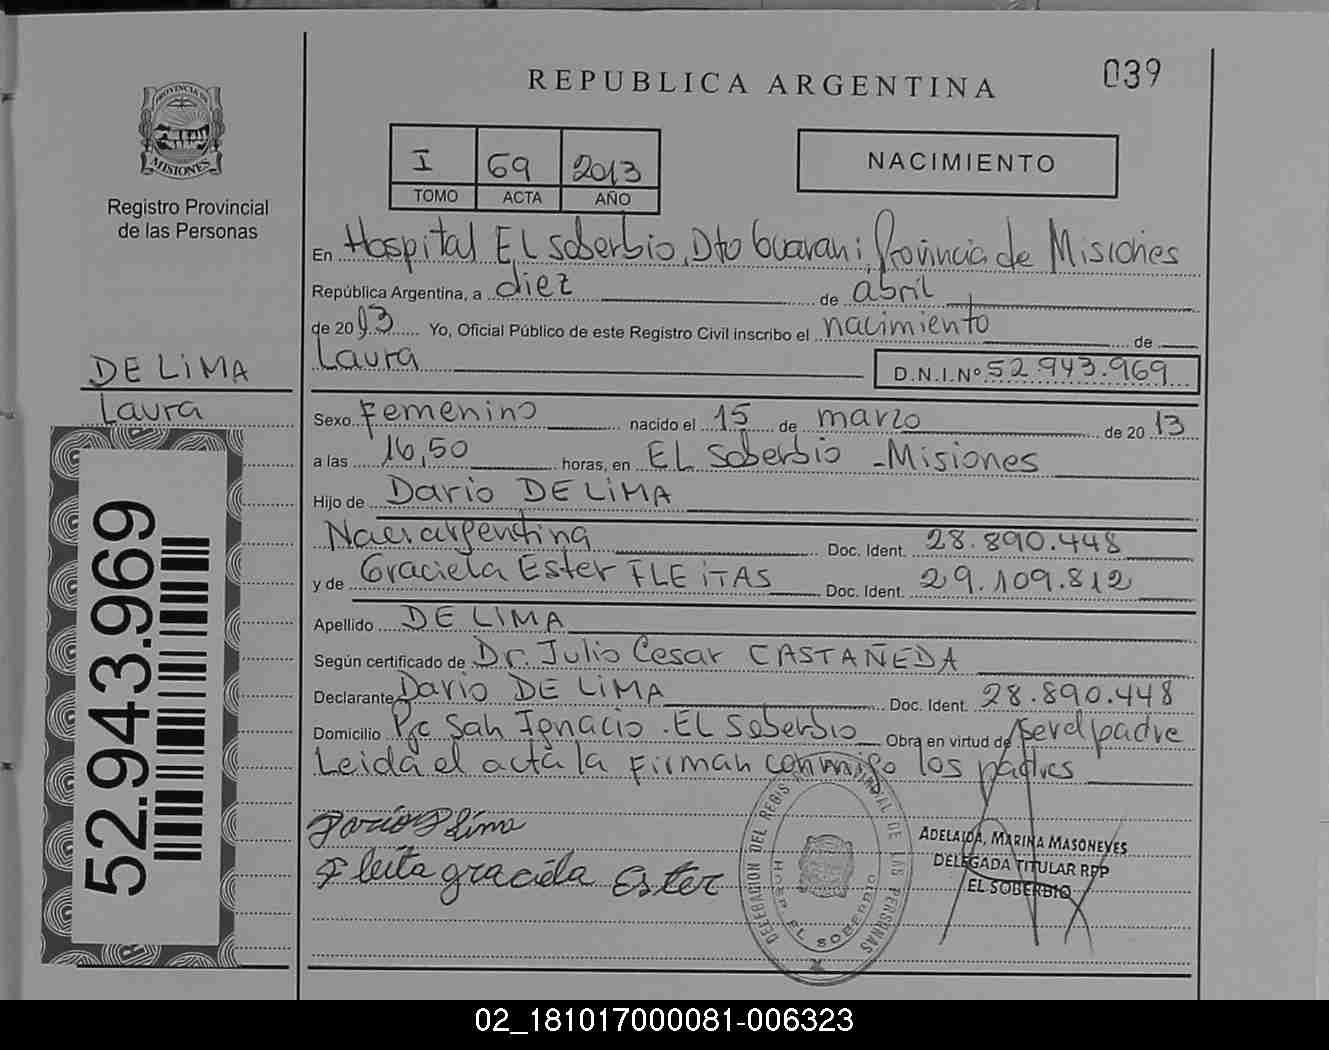 REPUBLICA ARGENTINA
039
PROVINCIA DE MISIONES
Registro Provincial
de las Personas
I 69 2013
TOMO ACTA AÑO
NACIMIENTO
En Hospital EL Soberbio, Dto Guarani, Provincia de Misiones
República Argentina, a diez de abril
de 2013 Yo, Oficial Público de este Registro Civil inscribo el nacimiento de
Laura D.N.I.Nº 52.943.969
DE LiMA
Laura
Sexo Femenino nacido el 15 de marzo de 2013
a las 16,50 horas, en EL Soberbio - Misiones
Hijo de Dario DE LiMA
Nac. argentina Doc. Ident. 28.890.448
y de Graciela Ester FLEiTAS Doc. Ident. 29.109.812
Apellido DE LIMA
Según certificado de Dr. Julio Cesar CASTAÑEDA
Declarante Dario DE LiMA Doc. Ident. 28.890.448
Domicilio Pje San Ignacio. EL Soberbio Obra en virtud de ser el padre
Leida el acta la Firman conmigo los padres
Dario D lima
Fleita graciela Ester
DELEGACION DEL REGISTRO PROVINCIAL DE LAS PERSONAS
EL SOBERBIO
ADELAIDA, MARINA MASONEVES
DELEGADA TITULAR RPP
EL SOBERBIO
52.943.969
02_181017000081-006323